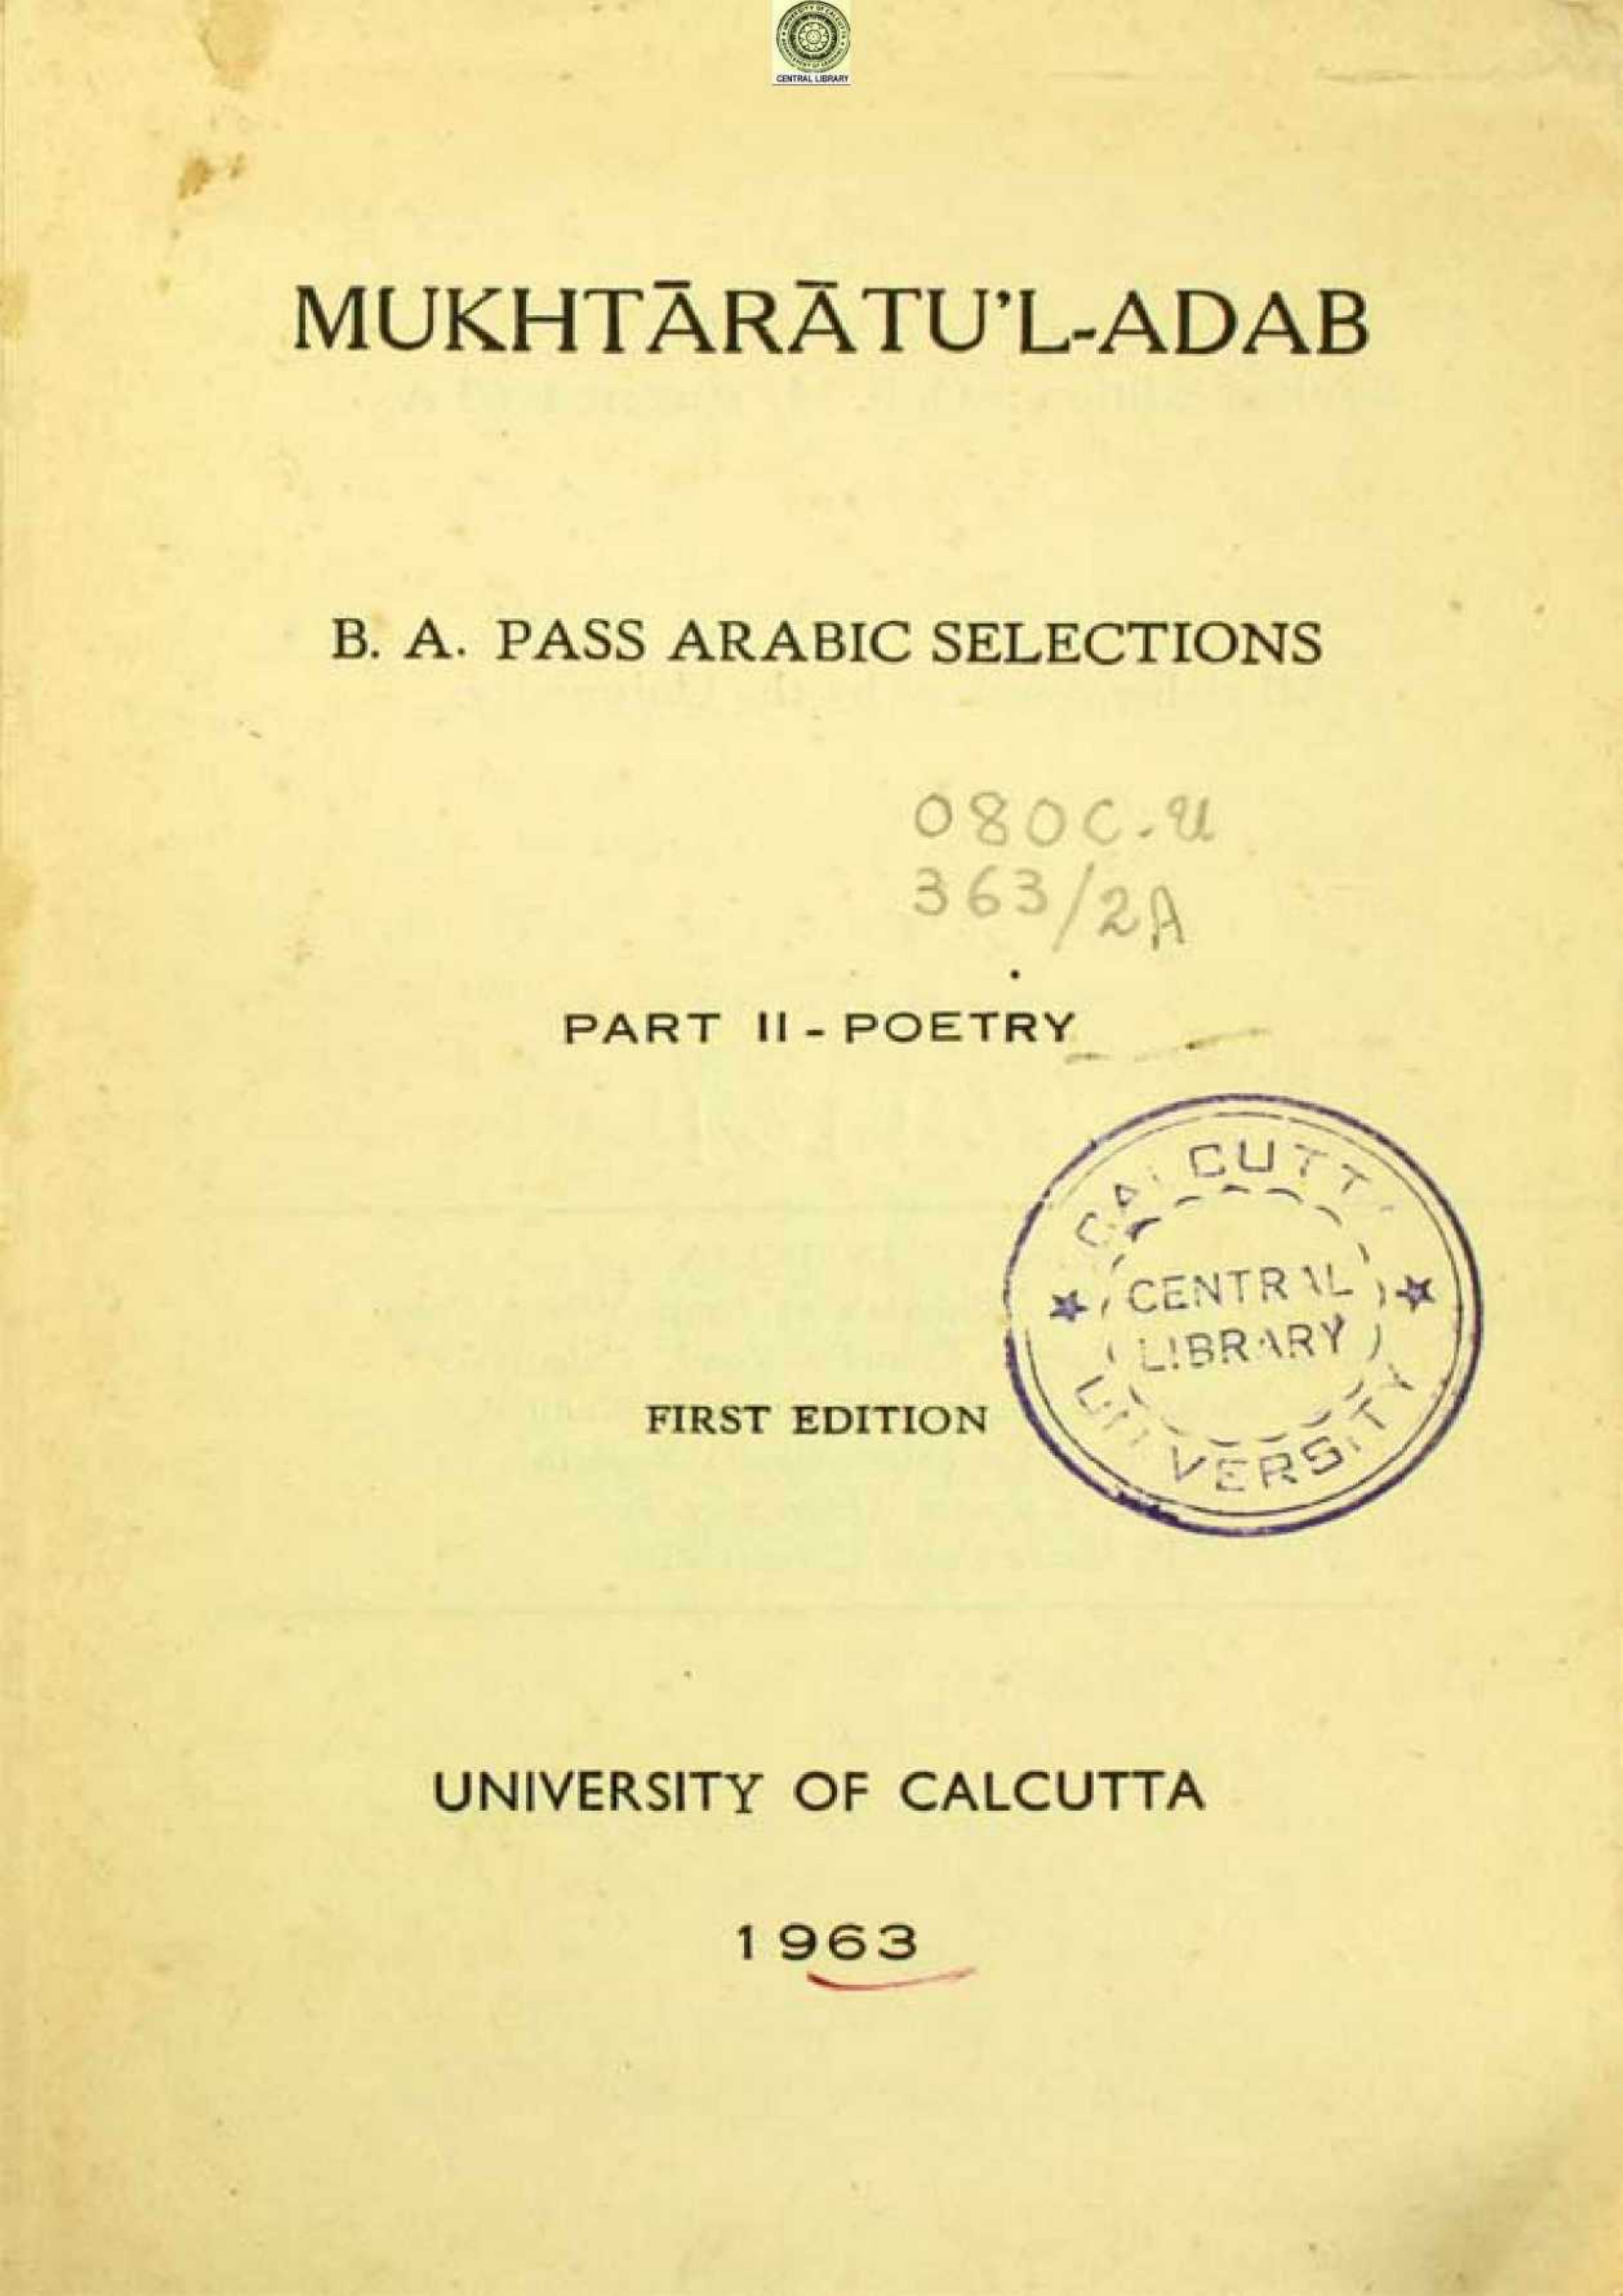 CENTRAL LIBRARY
MUKHTĀRĀTU’L-ADAB
B. A. PASS ARABIC SELECTIONS
080C.U
363/2A
PART II - POETRY
CALCUTTA
CENTRAL
LIBRARY
UNIVERSITY
FIRST EDITION
UNIVERSITY OF CALCUTTA
1963